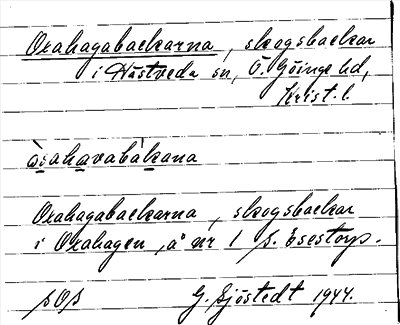 Oxahagabackarna, skogsbackar
i Hästveda sn, Ö. Göinge hd,
Krist. l.
àsahavabàkana
Oxahagabackarna, skogsbackar
i Oxahagen, å nr 1 S. Esestorp.
SOS G. Sjöstedt 1944.